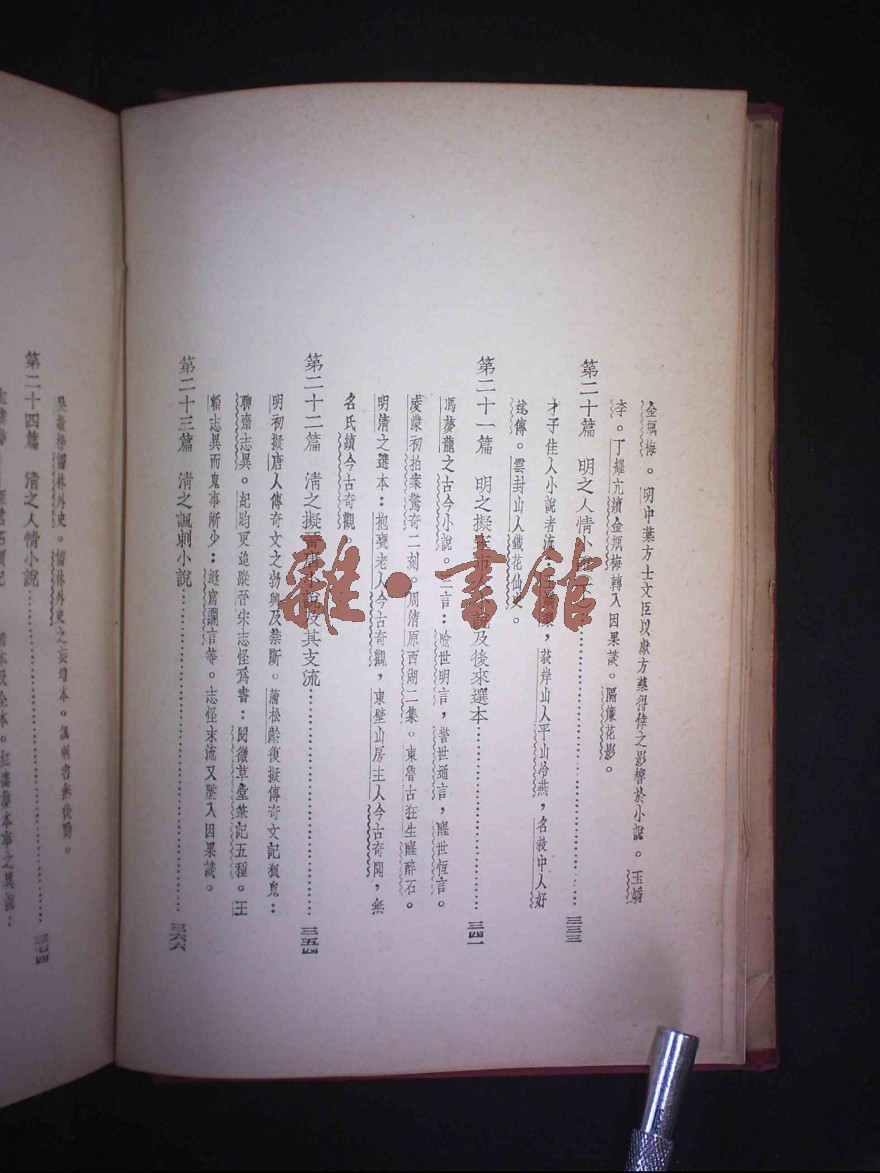 金瓶梅。明中葉方士文臣以獻方藥得倖之影響於小說。玉嬌
李。丁耀亢續金瓶梅轉入因果談。隔簾花影。
第二十篇　明之人情小說　三三三
才子佳人小說者流：，荻岸山人平山冷燕，名敎中人好
逑傳。雲封山人鐵花仙史。
第二十一篇　明之擬宋市人小說及後來選本　三四一
馮夢龍之古今小說。三言：喩世明言，警世通言，醒世恆言。
凌濛初拍案驚奇二刻。周淸原西湖二集。東魯古狂生醒醉石。
明淸之選本：抱甕老人今古奇觀，東壁山房主人今古奇聞，無
名氏續今古奇觀。
第二十二篇　淸之擬晉唐小說及其支流　三五四
明初擬唐人傳奇文之勃興及禁斷。蒲松齡復擬傳奇文記狐鬼：
聊齋志異。紀昀更追蹤晉宋志怪爲書：閱微草堂筆記五種。王
韜志異而鬼事漸少：遯窟讕言等。志怪末流又墜入因果談。
第二十三篇　淸之諷刺小說　三六六
吳敬梓儒林外史。儒林外史之妄增本。諷刺書無後勁。
第二十四篇　淸之人情小說　三七四
本事之異說：
雜·書館